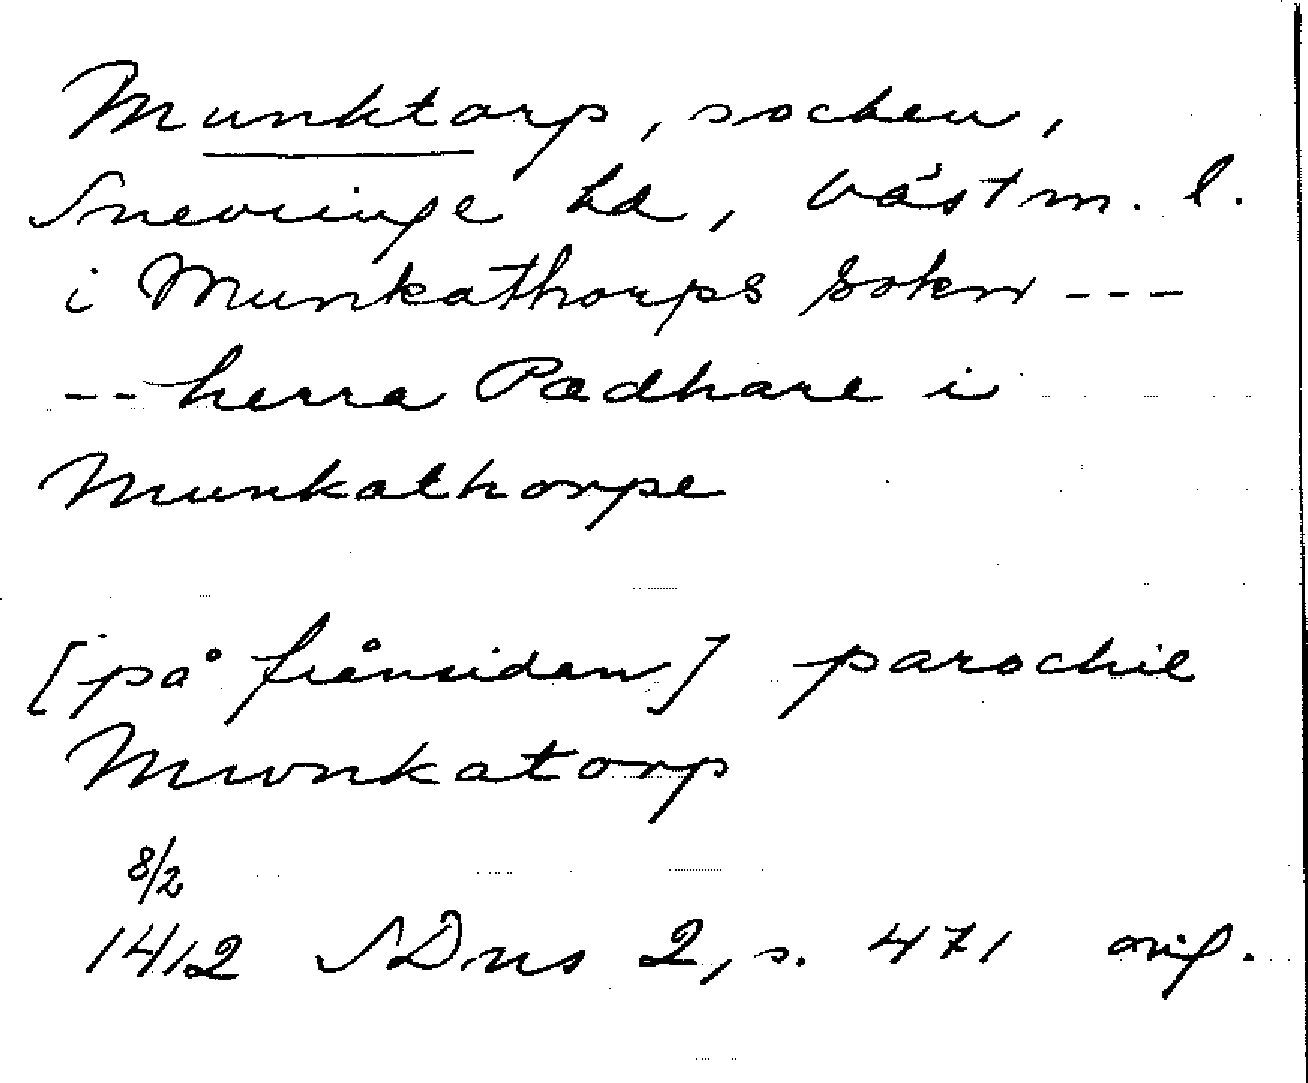 Munktorp, socken,
Snevringe hd, Västm. l.
i Munkathorps sokn ---
-- herra Pædhare i
Munkathorpe
[på frånsidan] parochie
Mwnkatorp
8/2
1412 SDns 2, s. 471 orig.